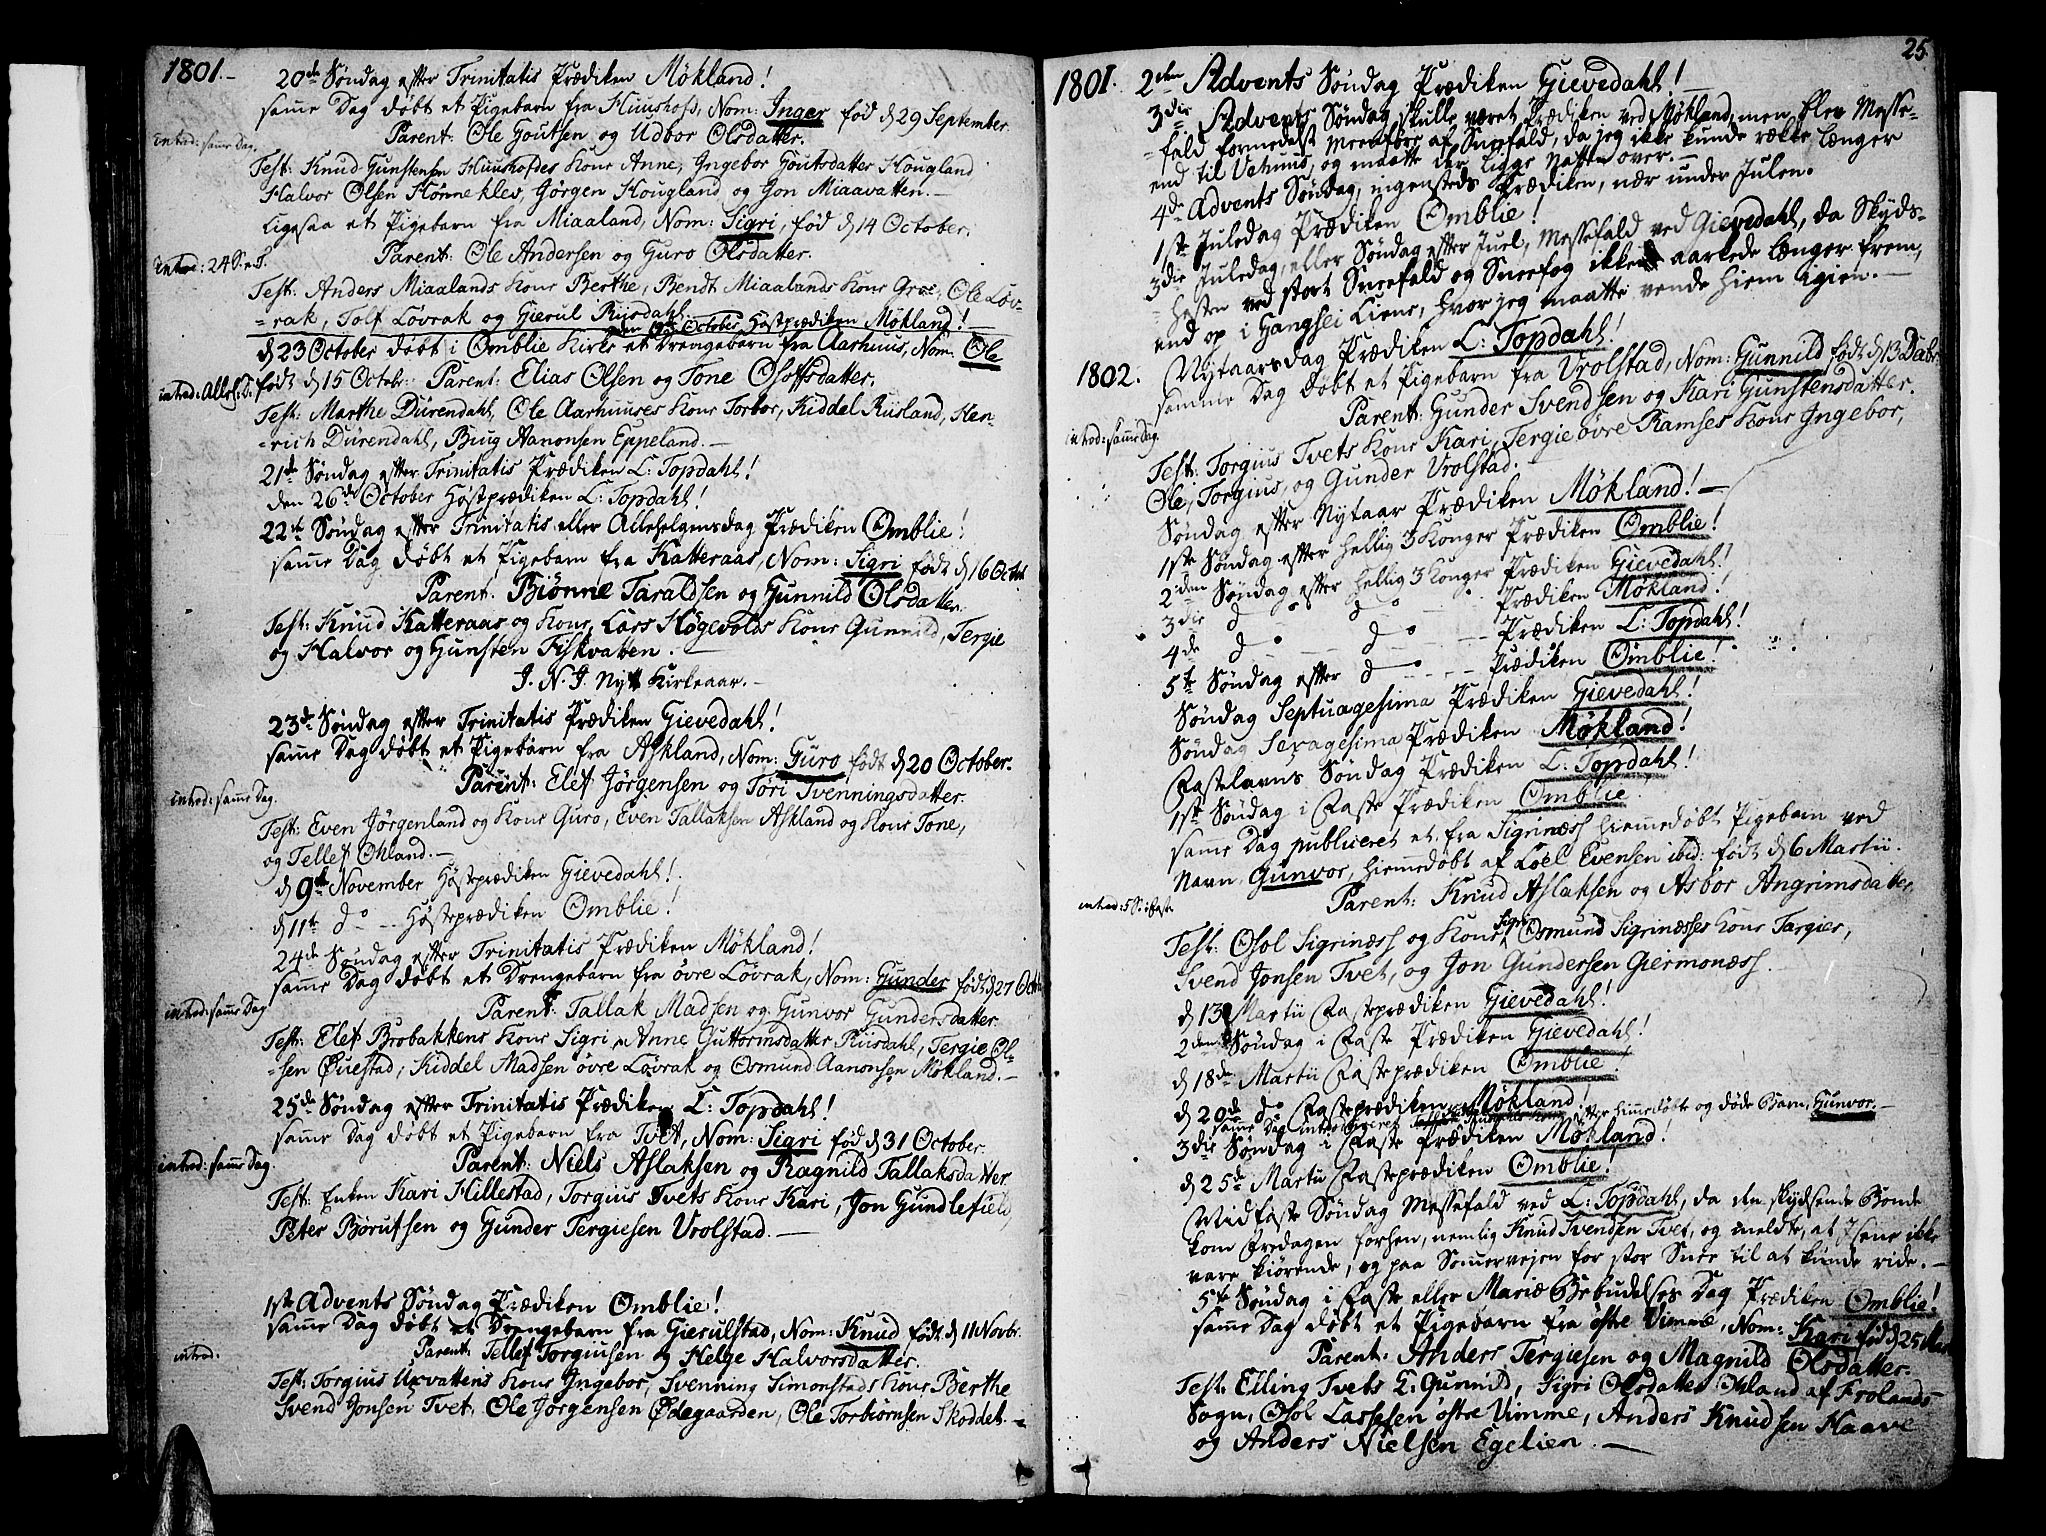 1801.-
20de Søndag efter Trinitatis Prædiken Møkland!
samme Dag døbt et Pigebarn fra Huushofs, Nom: Inger fød d 29 September.
Parent: Ole Goutsen og Udbor Olsdatter.
introd: samme Dag.
Test: Knud Gunstensen Huushofdes Kone Anne, Ingebor Goutsdatter Hougland
Halvor Olsen Hønnekles, Jørgen Hougland og Jon Miaavatten.-
Ligesaa et Pigebarn fra Miaaland, Nom: Sigri, fød d 14 October.
Parent: Ole Andersen og Guro Olsdatter.
introd: 24 S. e. T.
Test: Anders Miaalands Kone Berthe, Bendt Miaalands Kone Groe, Ole Løv-
-rak, Tolf Løvrak og Gierul Riisdahl.
den 19de October Høstprædiken Møkland!
d 23 October døbt i Omblie Kirke et Drengebarn fra Aarhuus, Nom: Ole
født d 15 Octobr: Parent: Elias Olsen og Tone Osolfsdatter.
introd: Alleh: D:
Test: Marthe Dürendahl, Ole Aarhuuses Kone Torbor, Kiddel Risland, Hen-
-rich Dürendahl, Biug Aanonsen Eppeland.-
21de Søndag efter Trinitatis Prædiken L: Topdahl!
den 26de October Høstprædiken L: Topdahl!
22de Søndag efter Trinitatis eller Allehelgensdag Prædiken Omblie!
samme Dag døbt et Pigebarn fra Katteraas, Nom: Sigri født d 16 Octbr
Parent: Biønne Taraldsen og Gunnild Olsdatter.
Test: Knud Katteraas og Kone, Lars Høgevolds Kone Gunnild, Tergie
og Halvor og Gunsten Fiskvaten.
J. N. J. Nytt Kirkeaar.-
23de Søndag efter Trinitatis Prædiken Gievedahl!
samme Dag døbt et Pigebarn fra Askland, Nom: Guro født d 20 October.
Parent: Elef Jørgensen og Tori Svenningsdatter.
introd: samme Dag.
Test: Even Jörgenland og Kone Guro, Even Tallaksen Askland og Kone Tone,
og Tellef Ohland.-
d 9de November Høstprædiken Gievedahl!
d 11te do -- Høsteprædiken Omblie!
24de Søndag efter Trinitatis Prædiken Møkland!
samme Dag døbt et Drengebarn fra øvre Løvrak, Nom: Gunder født d 27 Octbr
Parent: Tallak Madsen og Gunvor Gundersdatter.
introd: samme Dag
Test: Elef Brobakkens Kone Sigri, Anne Guttormsdatter Riisdahl, Tergie Ol-
-sen Øvestad, Kiddel Madsen øvre Løvrak og Osmund Aanonsen Møkland.-
25de Søndag efter Trinitatis Prædiken L: Topdahl!
samme Dag døbt et Pigebarn fra Tvet, Nom: Sigri fød d 31 October.
Parent: Niels Aslaksen og Ragnild Tallaksdatter.
introd: samme Dag
Test: Enken Kari Hillestad, Torgius Tvets Kone Kari, Jon Gundlefield
Peter Børufsen og Gunder Tergiesen Vrolstad.-
1ste Advents Søndag Prædiken Omblie!
samme Dag døbt et Drengebarn fra Gierulstad, Nom: Knud født d 11 Novbr.
Parent: Tellef Torgiusen og Helge Halvorsdatter.
introd.
Test: Torgius Uxvattens Kone Ingebor, Svenning Simonstads Kone Berthe
Svend Jonsen Tvet, Ole Jørgensen Ødegaarden, Ole Torbiørnsen Skoddet.-
25.
1801. 2den Advents Søndag Prædiken Gievedahl!
3die Advents Søndag skulle været Prædiken ved Møkland, men blev Messe-
-fald formedelst Meenføre af Sneefald, da jeg ikke kunde række længer
end til Vehuus, og maatte der ligge Natten over.-
4de Advents Søndag, ingensteds Prædiken, nær under Julen.
1ste Juledag Prædiken Omblie!
3die Juledag, eller Søndag efter Juel, Messefald ved Gievedahl, da Skyds-
-hesten ved stort Sneefald og Sneefog ikke aarkede længer frem,
end op i Hangsei Liene, hvor jeg maatte vende hiem igien.-
1802. Nytaarsdag Prædiken L: Topdahl!
samme Dag døbt et Pigebarn fra Vrolstad, Nom: Gunnild født d 13 Decbr.
Parent: Gunder Svendsen og Kari Gunstensdatter.
introd: samme Dag.
Test: Torgius Tvets Kone Kari, Tergie øvre Ramses Kone Ingebor,
Ole, Torgius, og Gunder Vrolstad.-
Søndag efter Nytaar Prædiken Møkland!-
1ste Søndag efter Hellig 3 Konger Prædiken Omblie!
2den Søndag efter Hellig 3 Konger Prædiken Gievedahl!
3die do -- do -- Prædiken Møkland!
4de do -- do -- Prædiken L: Topdahl!
5te Søndag efter do -- Prædiken Omblie!
Søndag Septuagesima Prædiken Gievedahl!
Søndag Sexagesima Prædiken Møkland!
Fastelavns Søndag Prædiken L: Topdahl!
1ste Søndag i Faste Prædiken Omblie
samme Dag publiceret et fra Sigrinæss hiemmedøbt Pigebarn ved
Navn Gunvor, hiemmedøbt af Loel Evensen ibid: født d 6 Martii.
Parent: Knud Aslaksen og Asbor Angrimsdatter.
introd: 5 S. i Faste
Test: Osol Sigrinæss og Kone Sigri, Osmund Sigrinæsses Kone Targier,
Svend Jonsen Tvet, og Jon Gundersen Giermonæss.
d 13 Martii Fasteprædiken Gievedahl!
2den Søndag i Faste Prædiken Gievedahl!
d 18de Martii Fasteprædiken Omblie!
d 20de do Fasteprædiken Møkland!
samme Dag introduceret efter hiemmedøbte og døde Barn, Gunvor.-
3die Søndag i Faste Prædiken Møkland!
d 25de Martii Fasteprædiken Omblie!
Midfaste Søndag Messefald ved L: Topdahl, da den skydsende Bonde
kom Fredagen forhen, nemlig Knud Svendsen Tvet, og meldte, at Isene ikke
vare kiørende, og paa Sommervejen for stor Snee til at kunde ride.-
5te Søndag i Faste eller Mariæ Bebudelses Dag Prædiken Omblie!
samme Dag døbt et Pigebarn fra østre Vimme, Nom: Kari fød d 25 Mar
Parent: Anders Tergiesen og Magnild Olsdatter.
Test: Elling Tvets E: Gunnild, Sigri Olsdatter Ohland af Frolands
Sogn, Osol Lassesen østre Vimme, Anders Knudsen Haave
og Anders Nielsen Egelien.-